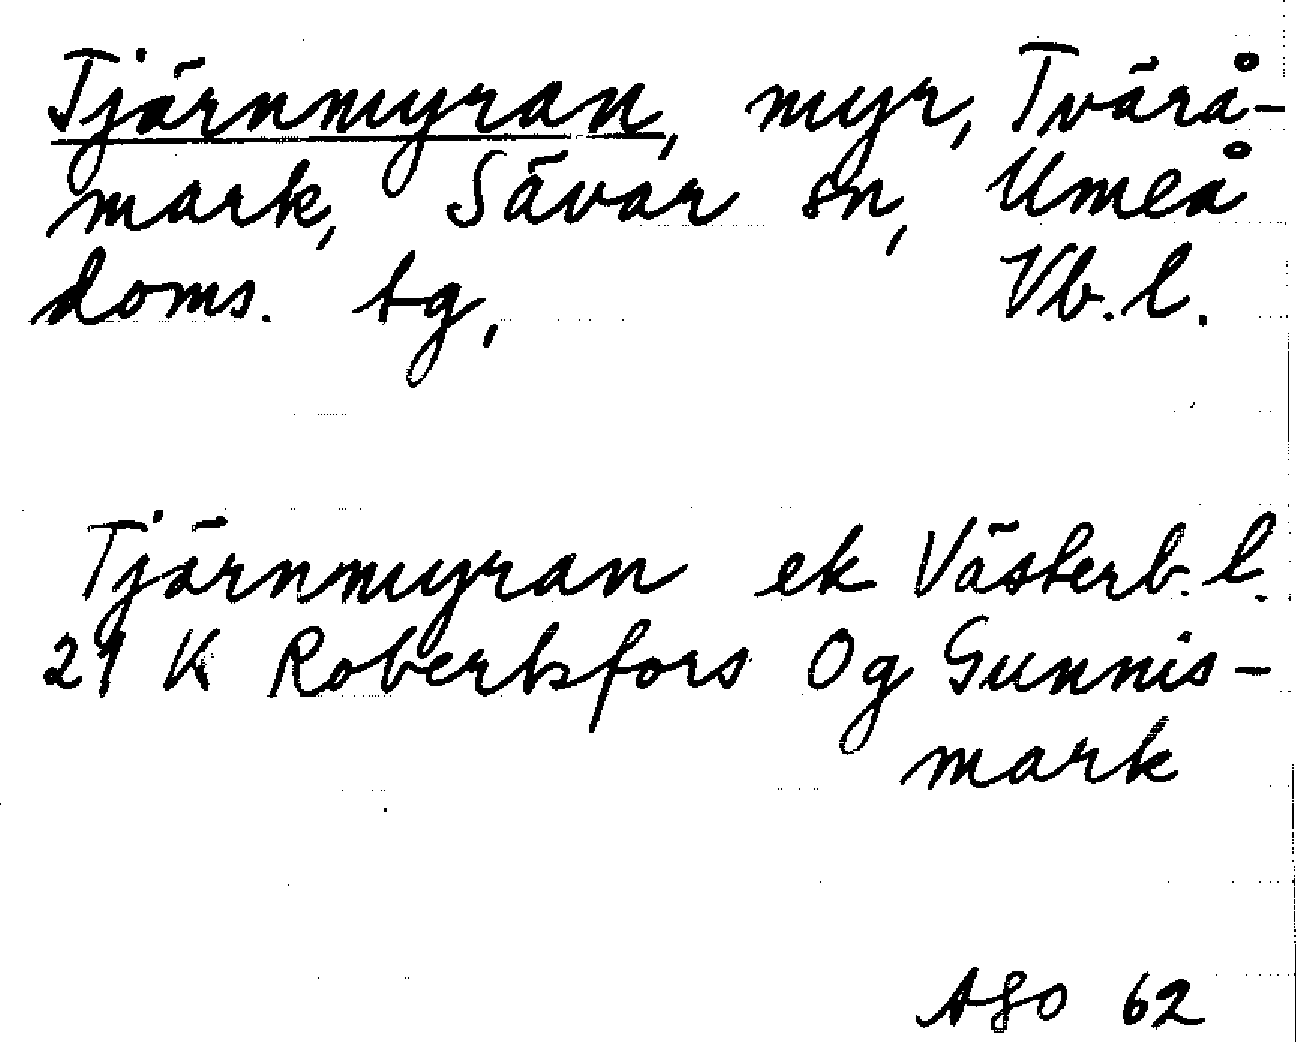 Tjärnmyran, myr, Tvärå-
mark, Sävar sn, Umeå
doms. tg, Vb. l.
Tjärnmyran ek Västerb. l.
21 K Robertsfors Og Gunnis-
mark
ASO 62